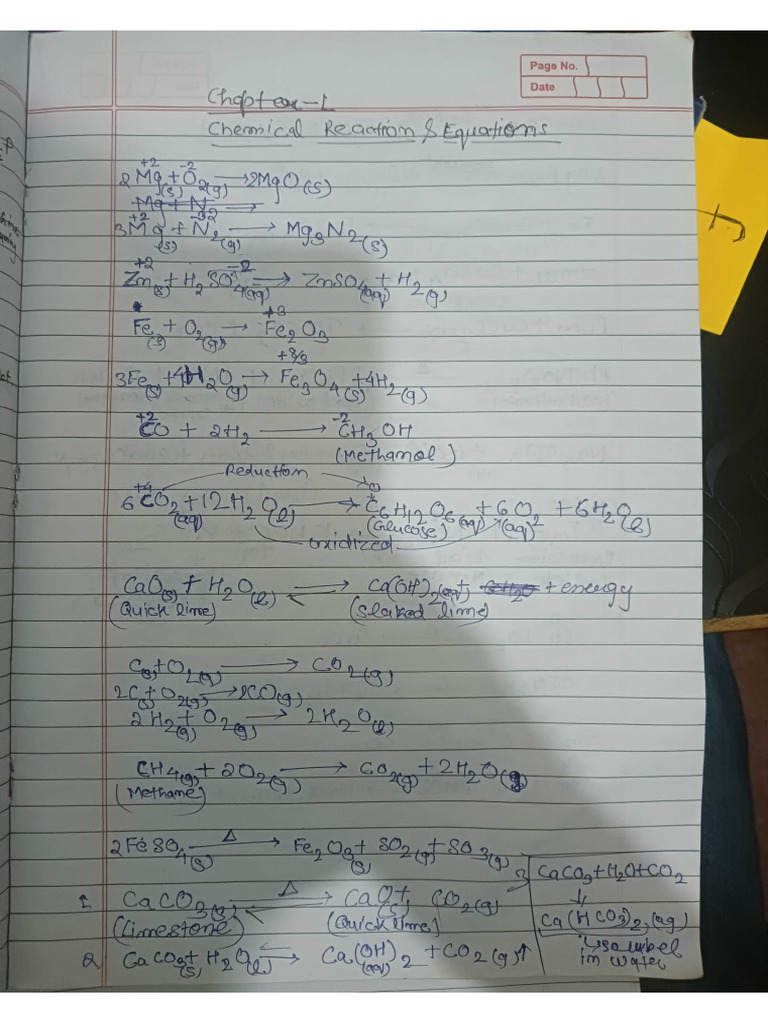 Page No.
Date
Chapter-1
Chemical Reaction & Equations
+2 -2
2Mg(s) + O2(g) → 2MgO(s)
Mg + N
+2 -3
3Mg(s) + N2(g) → Mg3N2(s)
+2 -2
Zn(s) + H2SO4(aq) → ZnSO4(aq) + H2(g)
+3
Fe(s) + O2(g) → Fe2O3
+8/3
3Fe(s) + 4H2O(g) → Fe3O4(s) + 4H2(g)
+2 -2
CO + 2H2 → CH3OH
(Methanol)
Reduction
+4 0
6CO2(aq) + 12H2O(l) → C6H12O6(aq) + 6O2(aq) + 6H2O(l)
(Glucose)
oxidized
CaO(s) + H2O(l) ⇌ Ca(OH)2(aq) + energy
(Quick lime) (Slaked lime)
C(s) + O2(g) → CO2(g)
2C(s) + O2(g) → 2CO(g)
2H2(g) + O2(g) → 2H2O(l)
CH4(g) + 2O2(g) → CO2(g) + 2H2O(g)
(Methane)
2FeSO4(s) —Δ→ Fe2O3(s) + SO2(g) + SO3(g)
1 CaCO3(s) ⇌Δ CaO(s) + CO2(g)
(Limestone) (Quick lime)
2 CaCO3(s) + H2O(l) ⇌ Ca(OH)2(aq) + CO2(g)↑
3 CaCO3 + H2O + CO2
↓
Ca(HCO3)2(aq)
in water